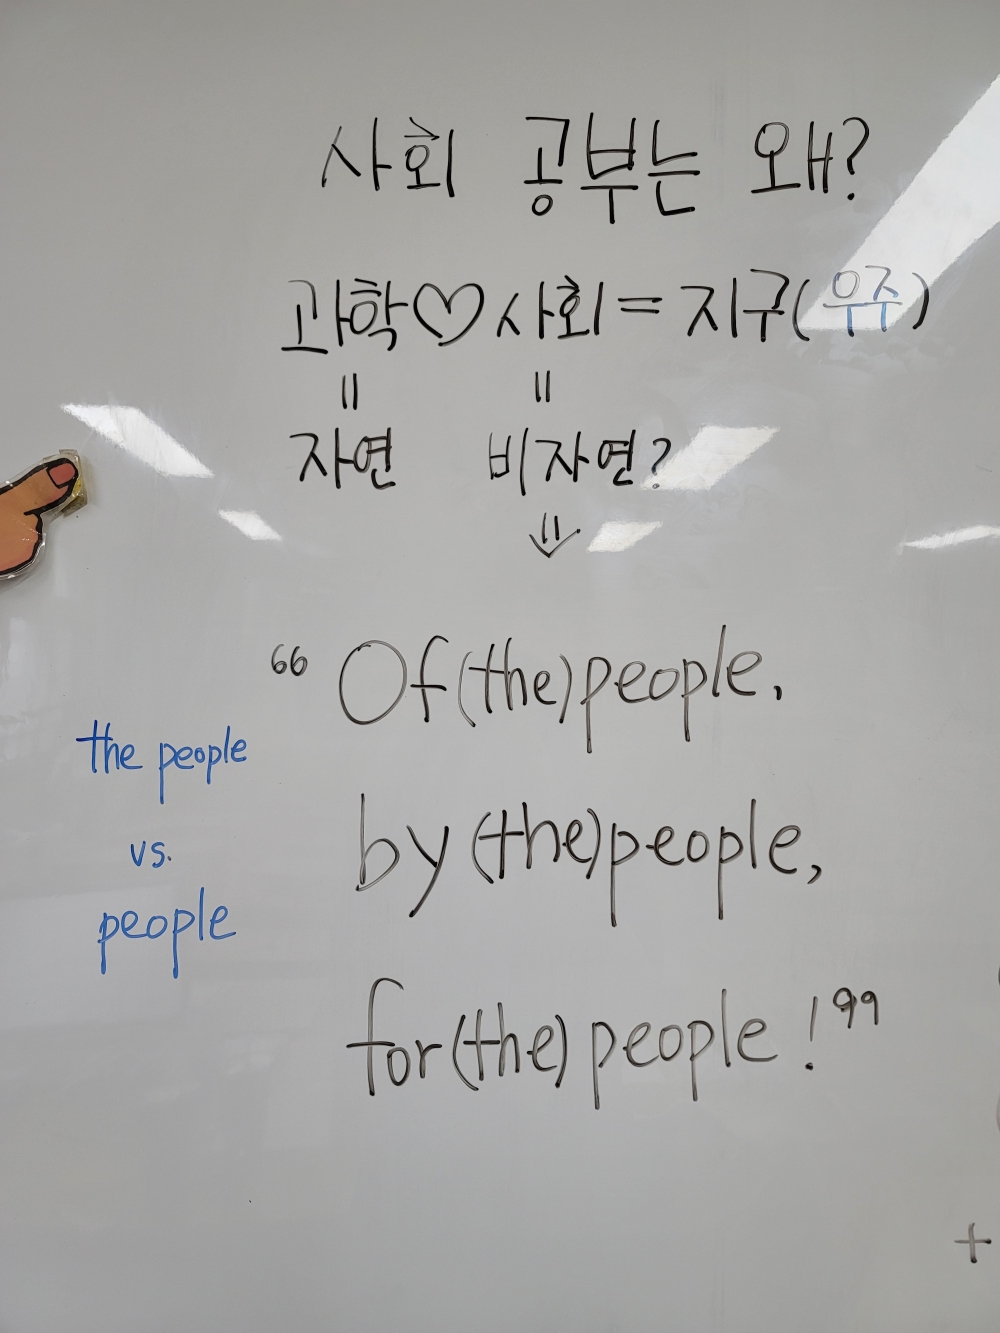 사회 공부는 왜?
과학♡사회=지구(우주)
= =
자연 비자연?
⇓
“Of (the) people,
by (the) people,
for (the) people!”
the people
vs.
people
+